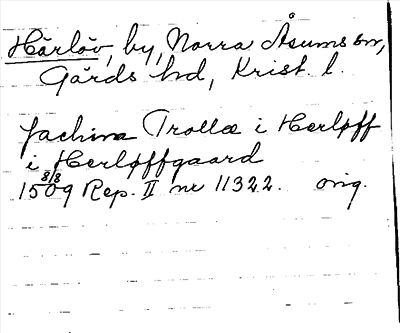 Härlöv, by, Norra Åsums sn,
Gärds hd, Krist. l.
Jachim Trolle i Herløff
i Herløffgaard
8/8
1509 Rep. II nr 11322. orig.